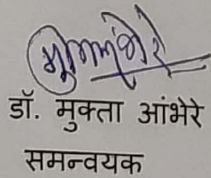 डॉ. मुक्ता आंभेरे
समन्वयक